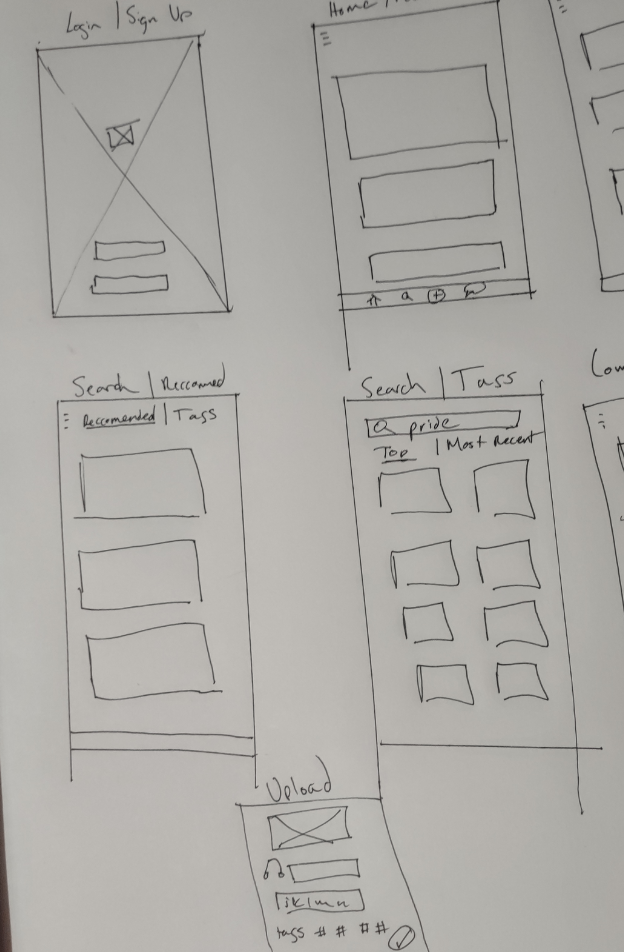 Login | Sign Up
Home /
Search | Reccomed
Reccomended | Tags
Search | Tags
pride
Top | Most Recent
Com
Upload
tags # # # #